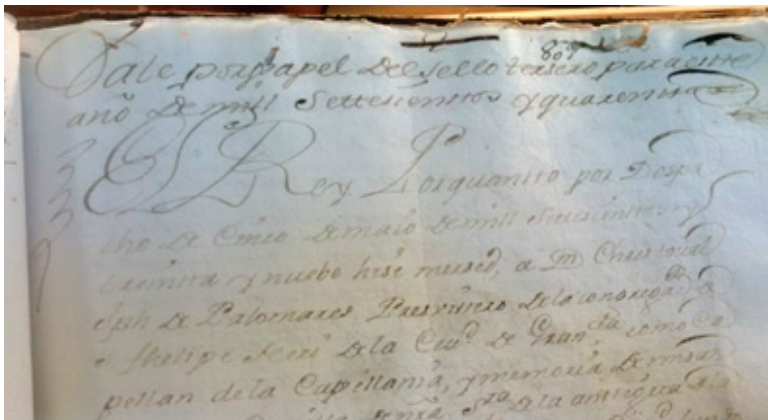 80
Vale por papel del sello tersero para este
año de mill Settesientos y quarenta
El Rey. Porquanto por Despa
cho de Cinco de maio de mill Setesientos y
treinta y nuebe hise mersed, a Dn Christoual
Jph de Palomares Presvitero de la congregon de
Sn Phelipe Neri de la Ciud de Granda como Ca
pellan de la Capellania, y memoria de misas
de la antigua